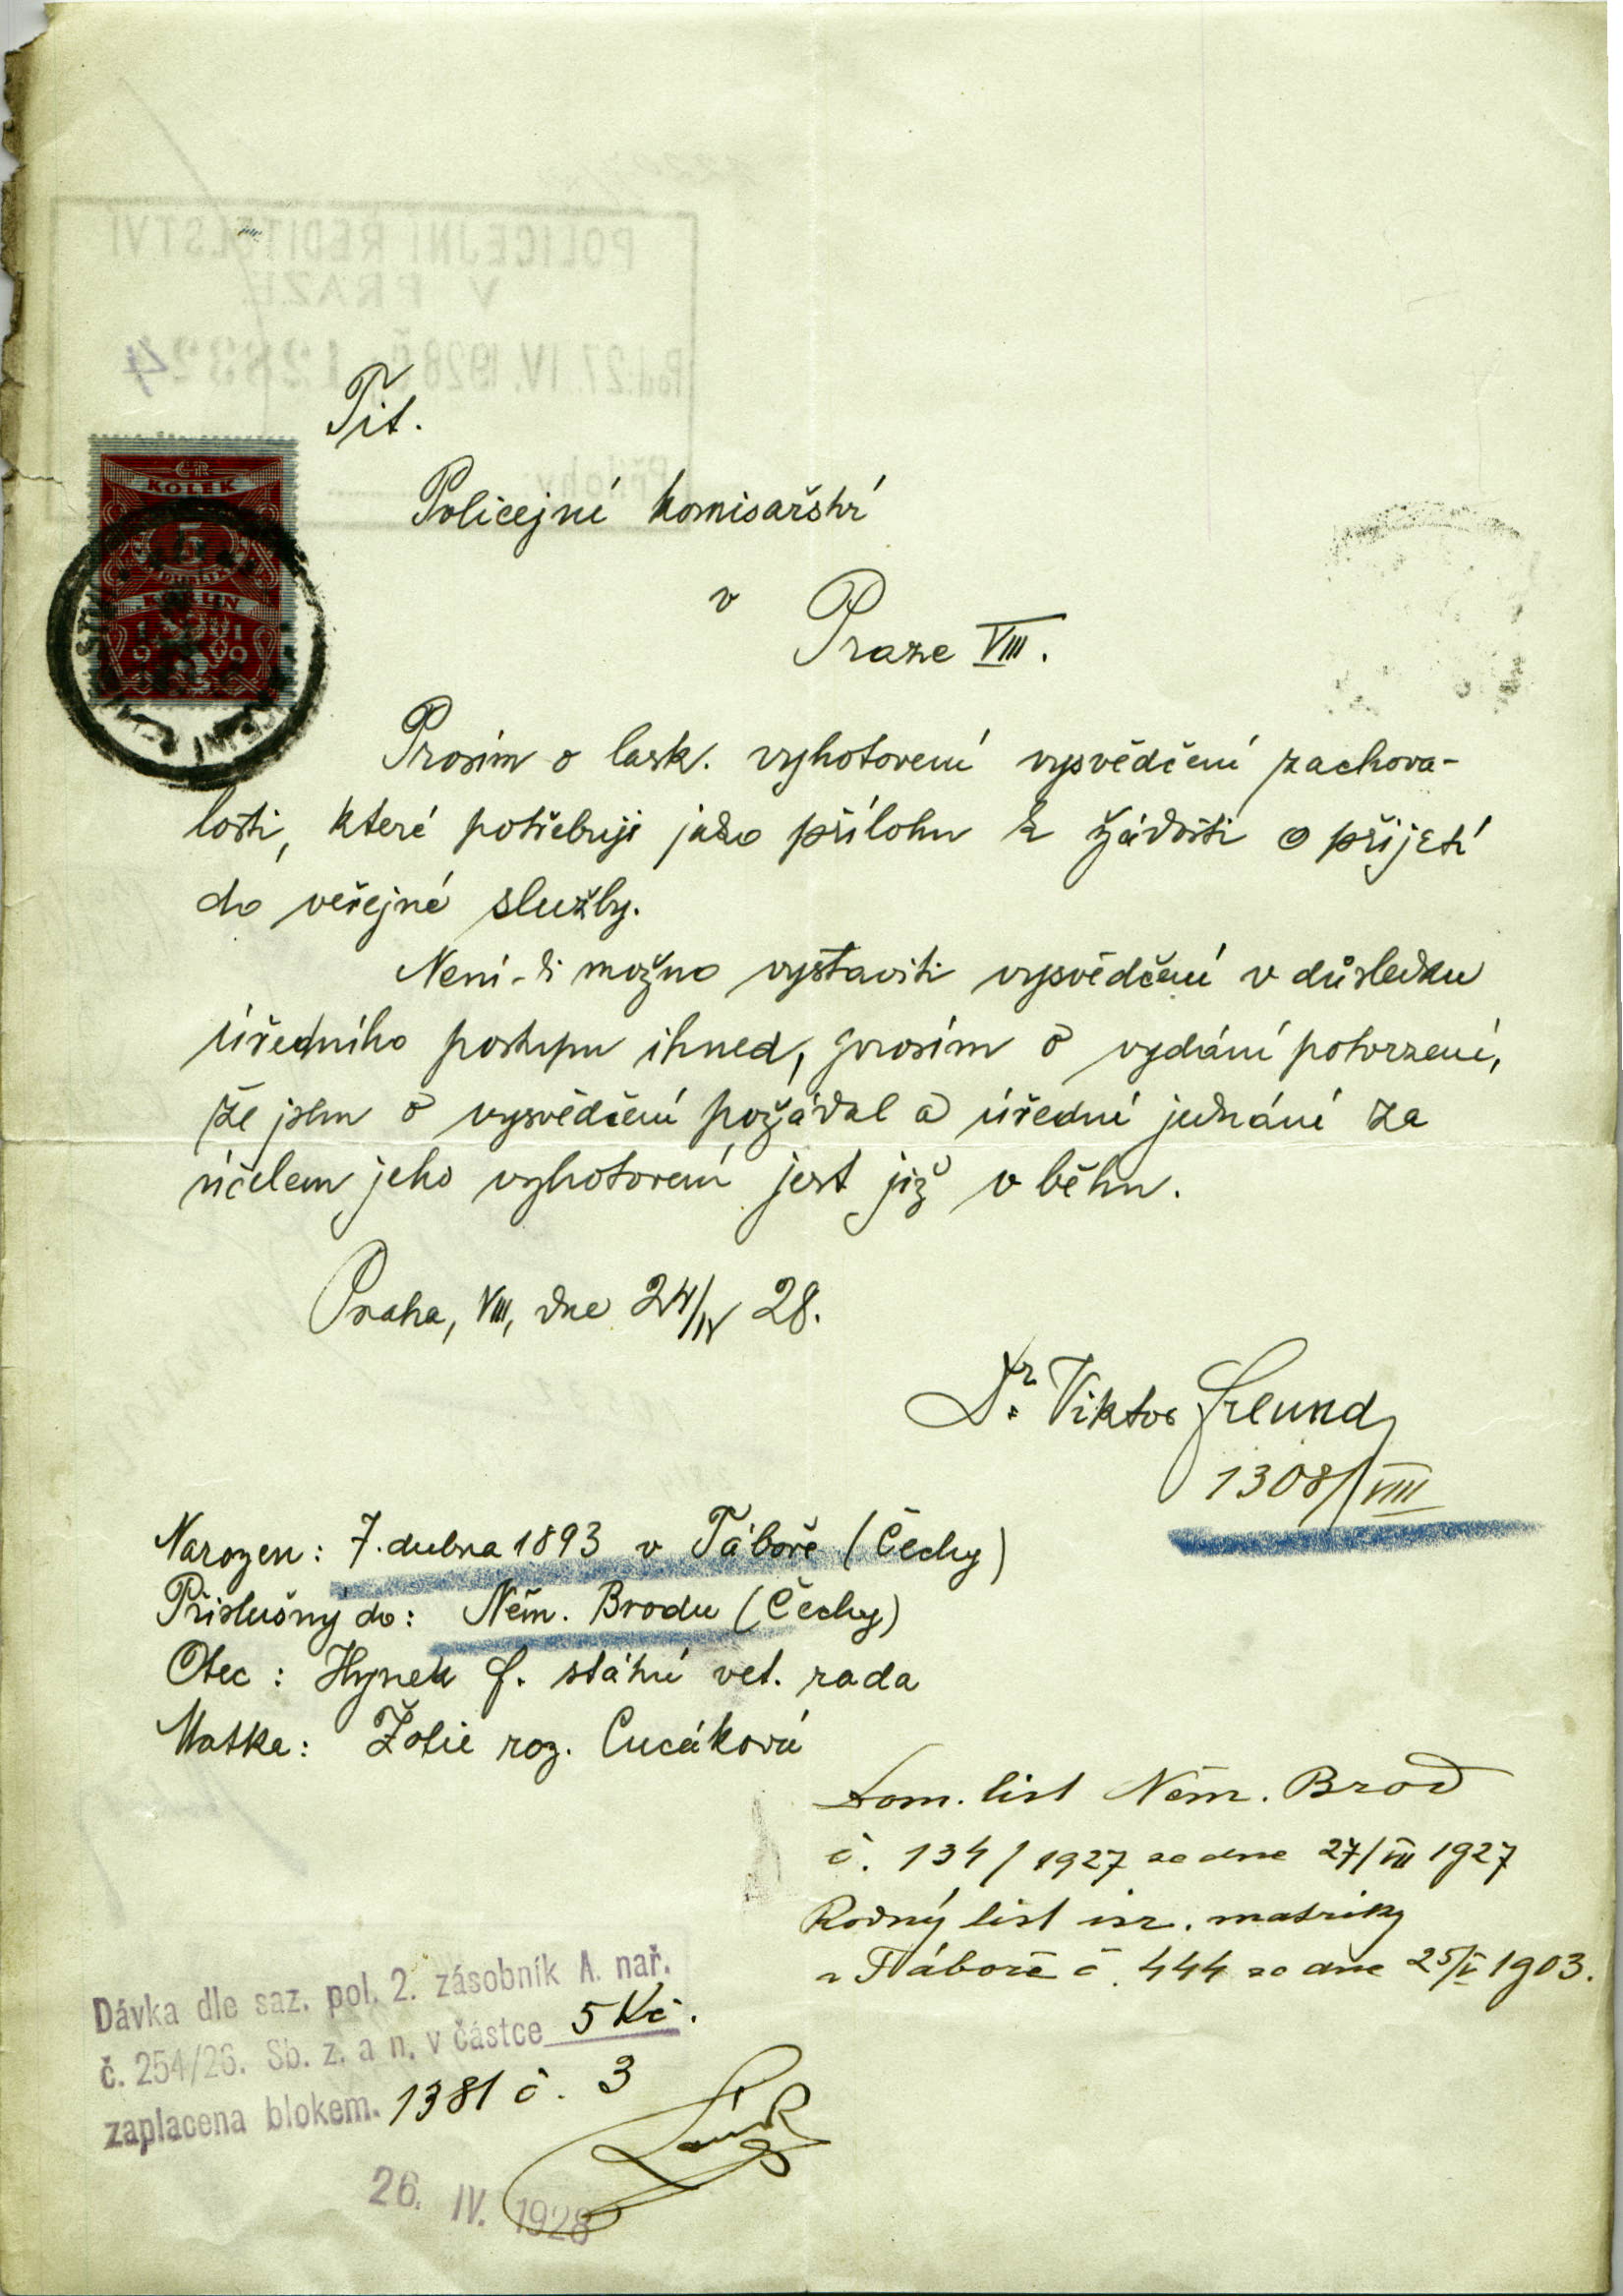 POLICEJNÍ ŘEDITELSTVÍ
V PRAZE
Pod. 27. IV. 1928 č.
Přílohy
Tit.
Policejní komisařství
v
Praze VIII.
ČR
KOLEK
5
KORUN
Prosím o lask. vyhotovení vysvědčení zachova-
losti, které potřebuji jako přílohu k žádosti o přijetí
do veřejné služby.
Není-li možno vystaviti vysvědčení v důsledku
úředního postupu ihned, prosím o vydání potvrzení,
že jsem o vysvědčení požádal a úřední jednání za
účelem jeho vyhotovení jest již v běhu.
Praha, VIII, dne 24/IV 28.
Dr. Viktor Freund
1308/VIII
Narozen: 7. dubna 1893 v Táboře (Čechy)
Příslušný do: Něm. Brodu (Čechy)
Otec: Hynek F. státní vet. rada
Matka: Žofie roz. Cucáková
Dom. list Něm. Brod
č. 134/1927 ze dne 27/VII 1927
Rodný list isr. matriky
v Táboře č. 444 ze dne 25/V 1903.
Dávka dle saz. pol. 2. zásobník A. nař.
č. 254/26. Sb. z. a n. v částce 5 Kč.
zaplacena blokem. 1381 č. 3
26. IV. 1928